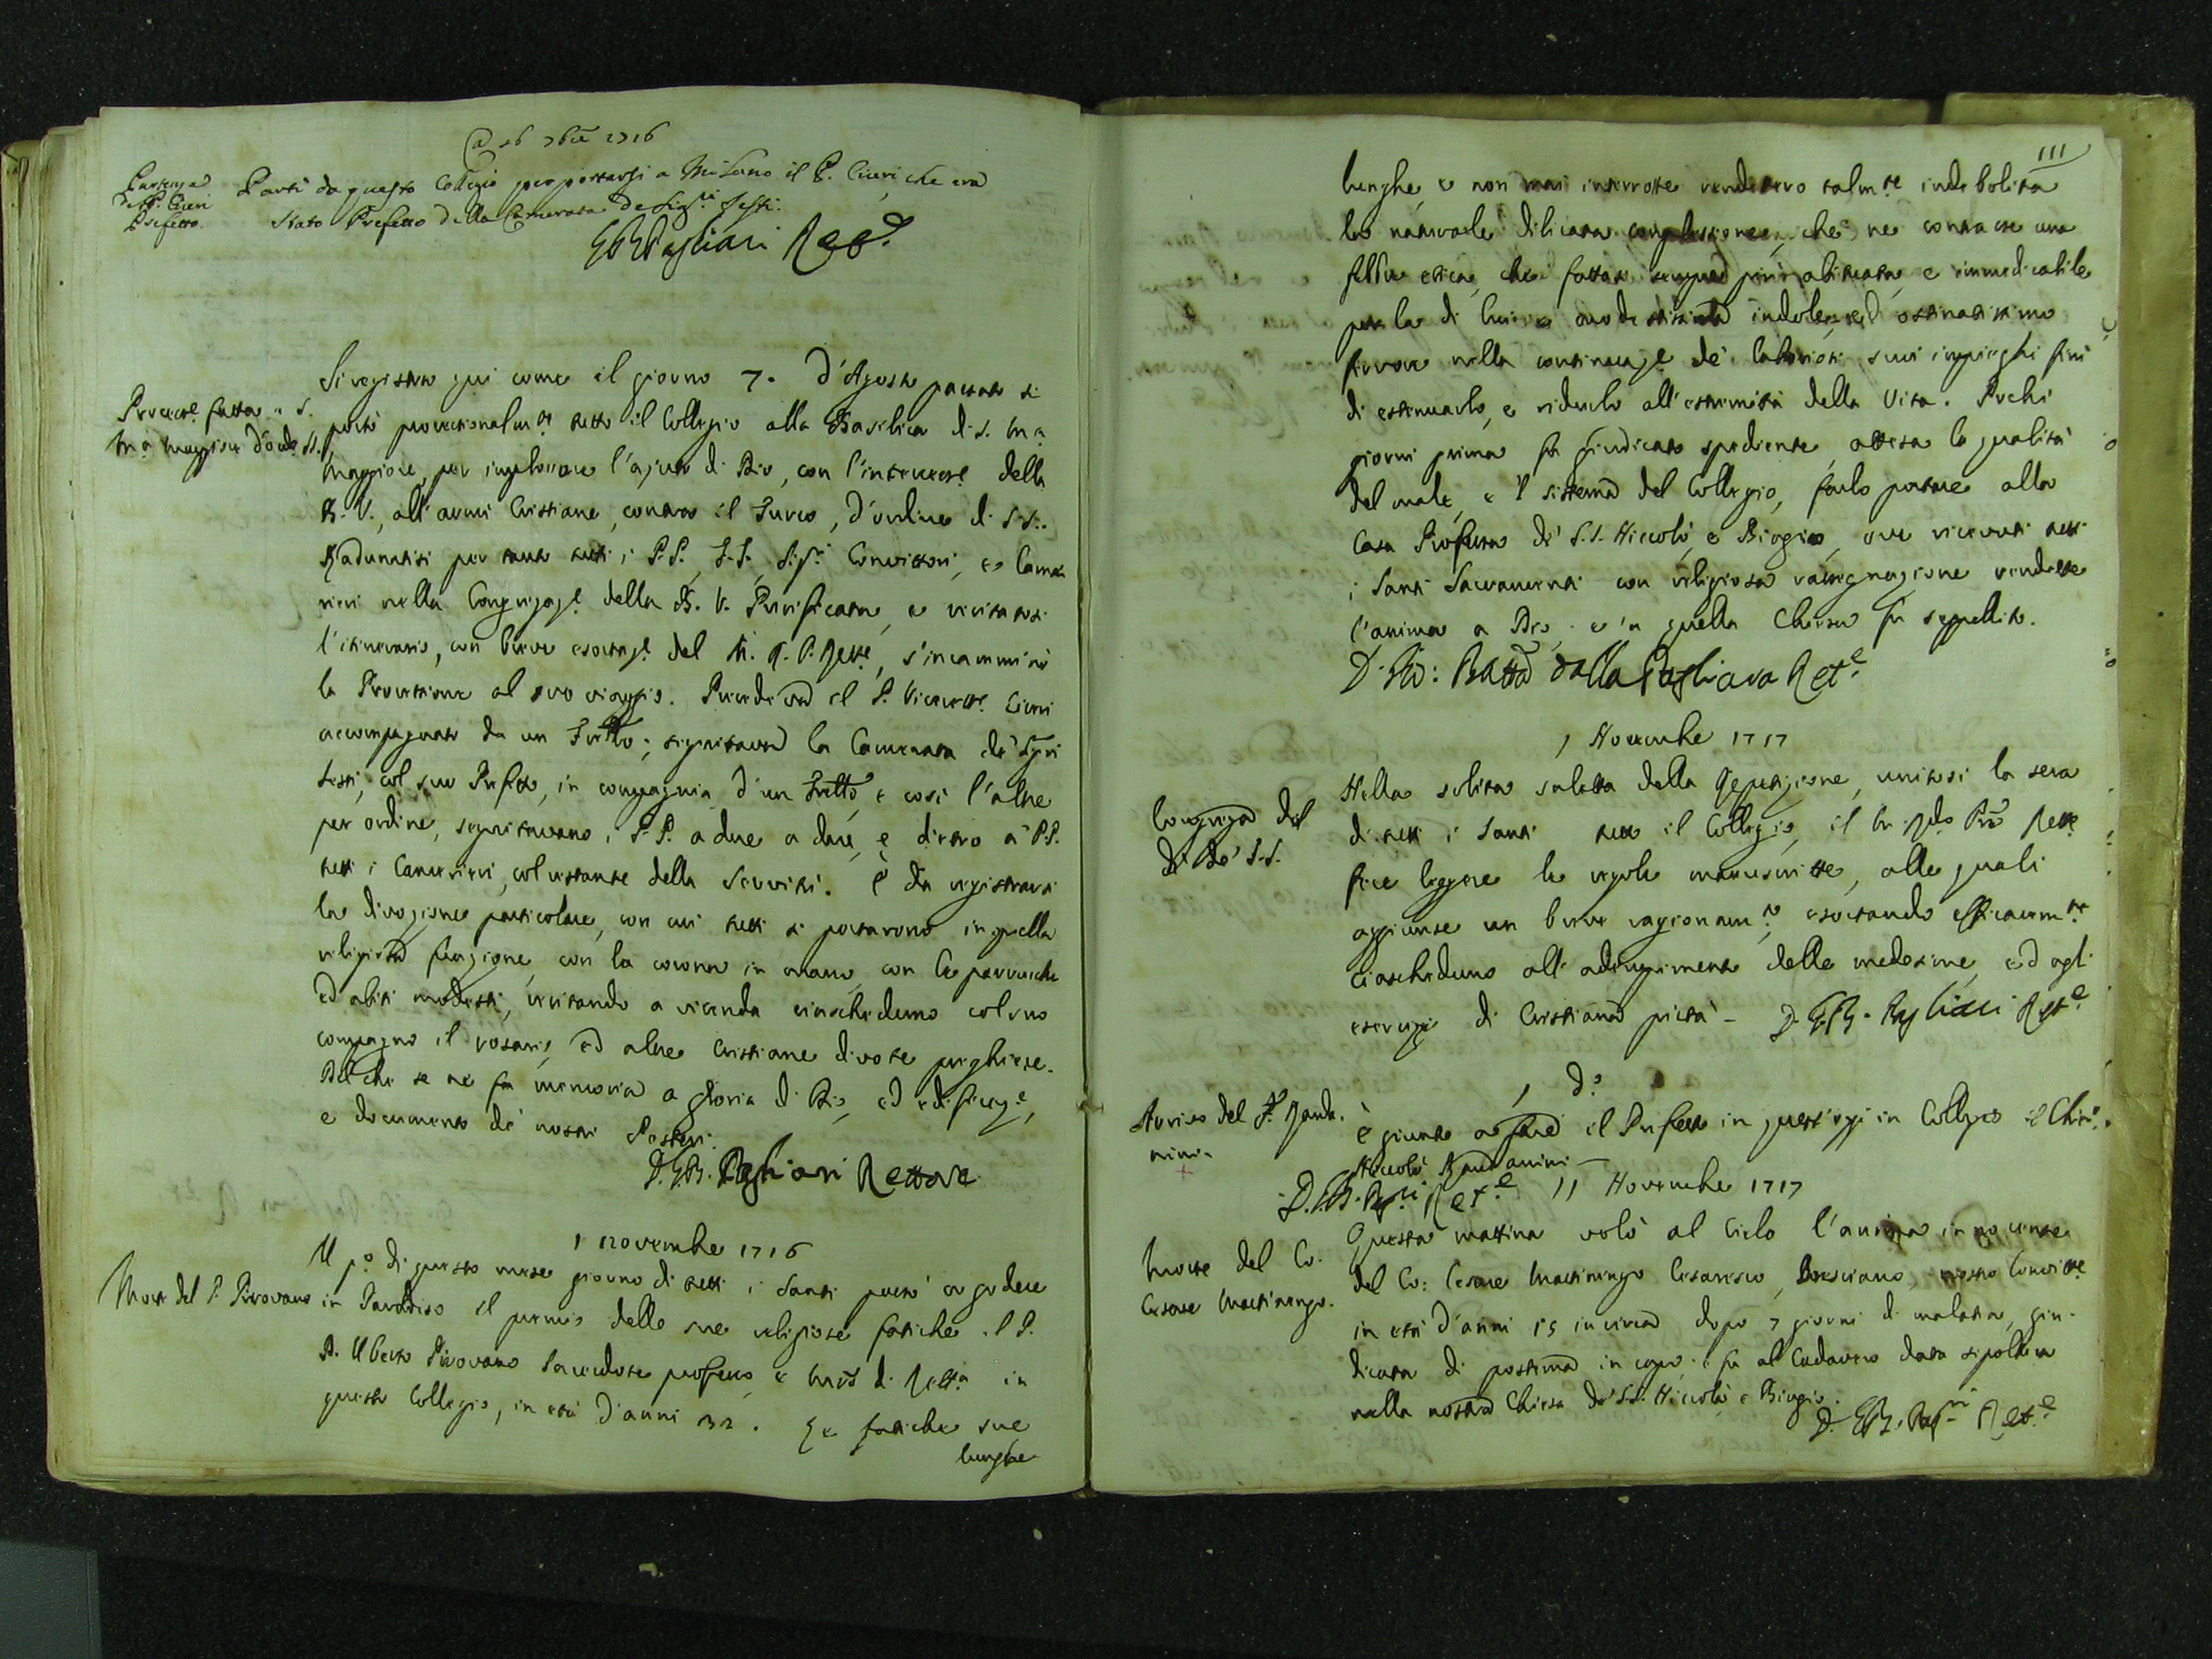 A 26 7bre 1716
Partenza
del P. Ciceri
Prefetto.
Partì da questo Collegio per portarsi a Milano il P. Ciceri che era
stato Prefetto della Camerata de Sigri sessi.
GB Pagliari Ret.
Si registra qui come il giorno 7. d'Agosto passato si
Process.e fatta a S.
Ma Maggiore d'ord. N.
portò processionalm.te tutto il Collegio alla Basilica di S. Ma
Maggiore, per implorare l'ajuto di Dio, con l'intercess.e della
B. V., all'armi Cristiane, contro il Turco, d'ordine di S. S.
Radunatisi per tanto tutti i P.P., F.F., Sig.ri Convittori, e Came
rieri nella Congregaz.e della B. V. Purificata, e recitatosi
l'itinerario, con breve esortaz.e del M. R. P. Rett.e, s'incamminò
la Processione al suo viaggio. Precedeva il P. Vicerett.e
accompagnato da un Fratello; seguitava la Camerata de' Sig.ri
, col suo Prefetto, in compagnia d'un Fratello, e così l'altre
per ordine, seguitavano i P.P. a due a due, e dietro a' P.P.
tutti i Camerieri, col restante della Servitù. È da registrarsi
la divozione particolare, con cui tutti si portarono in quella
religiosa funzione, con la corona in mano, con le perrucche
ed abiti modesti, recitando a vicenda ciascheduno col suo
compagno il rosario, ed altre Cristiane divote preghiere.
Del che se ne fa memoria a gloria di Dio, ed edificaz.e,
e documento de' nostri Posteri.
D. G.B. Pagliari Rettore
1 novembre 1716
Morte del P. Pirovano
Il p.o di questo mese giorno di tutti i Santi passò a godere
in Paradiso il premio delle sue religiose fatiche il P.
D. Uberto Pirovano Sacerdote professo, e Mro di Rett.a in
questo Collegio, in età d'anni 32. Le fatiche sue
lunghe
111
lunghe, e non mai interrotte renderono talm.te indebolita
la naturale dilicata complessione, che ne contrasse una
febbre etica, che fattasi sempre più abituata, e immedicabile
per la di lui modestissima indole, ed ostinatissimo
fervore nella continuaz.e de' laboriosi suoi impieghi finì
di estenuarlo, e ridurlo all'estremità della Vita. Pochi
giorni prima fu giudicato spediente, attesa la qualità
del male, e 'l sistema del Collegio, farlo portare alla
Casa Professa de' S.S. Niccolò, e Biagio, ove ricevuti tutti
i Santi Sacramenti con religiosa rassegnazione rendette
l'anima a Dio, e 'n quella Chiesa fu seppellito.
D. Gio: Batta dalla Pagliara Ret.e
1 Novembre 1717
Congrega del
dì de' S.S.
Nella solita saletta della Repetizione, unitosi la sera
di tutti i Santi tutto il Collegio, il M. Rdo Pre Rett.e
fece leggere le regole manuscritte, alle quali
aggiunse un breve ragionam.to, esortando efficacem.te
ciascheduno all'adempimento delle medesime, ed agli
esercizi di Cristiana pietà - D. G.B. Pagliari Ret.e
1 Do
Arrivo del F. Randa.
nini.
È giunto a fare il Prefetto in quest'oggi in Collegio il Chier.o
Niccolò Randanini -
D. G.B. Pag.ri Ret.e 11 Novembre 1717
Morte del Co.
Cesare Martinengo.
Questa mattina volò al Cielo l'anima innocente
del Co: Cesare Martinengo Cesaresco, Bresciano, nostro Convitt.e
in età d'anni 15 in circa dopo 7 giorni di malatia, giu-
dicata di postema in capo: e fu al Cadavero data sepoltura
nella nostra Chiesa de' S.S. Niccolò e Biagio.
D. G.B. Pag.ri Ret.e